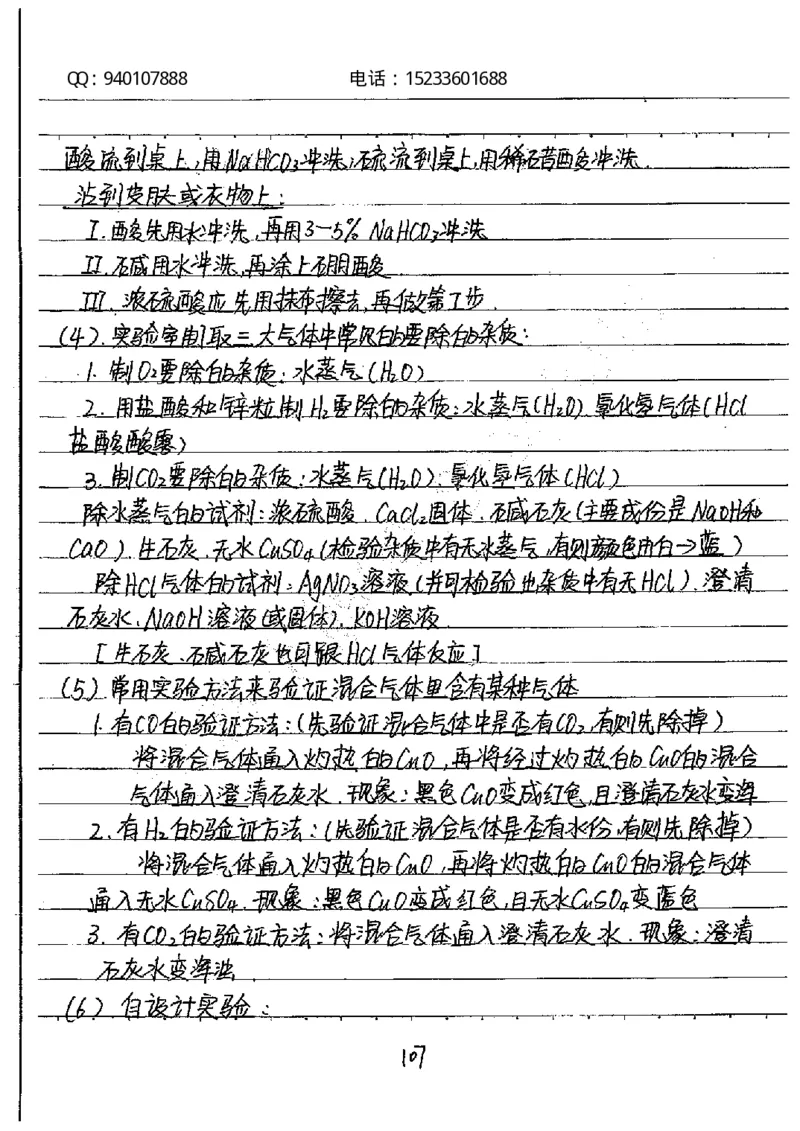 QQ：940107888 电话：15233601688
酸流到桌上,用NaHCO₃冲洗,硫流到桌上,用稀醋酸冲洗.
沾到皮肤或衣物上:
I.酸先用水冲洗,再用3-5% NaHCO₃冲洗
II.碱用水冲洗,再涂上硼酸
III.浓硫酸应先用抹布擦去,再做第I步.
(4).实验室制取三大气体中常见的要除的杂质:
1.制O₂要除的杂质:水蒸气(H₂O)
2.用盐酸和锌粒制H₂要除的杂质:水蒸气(H₂O)、氯化氢气体(HCl
盐酸酸雾)
3.制CO₂要除的杂质:水蒸气(H₂O)、氯化氢气体(HCl)
除水蒸气的试剂:浓硫酸、CaCl₂固体、碱石灰(主要成份是NaOH和
CaO)、生石灰、无水CuSO₄(检验杂质中有无水蒸气,有则颜色由白→蓝)
除HCl气体的试剂:AgNO₃溶液(并可检验出杂质中有无HCl)、澄清
石灰水、NaOH溶液(或固体)、KOH溶液
[生石灰、碱石灰也可跟HCl气体反应]
(5)常用实验方法来验证混合气体里含有某种气体
1.有CO的验证方法:(先验证混合气体中是否有CO₂,有则先除掉)
将混合气体通入灼热的CuO,再将经过灼热的CuO的混合
气体通入澄清石灰水.现象:黑色CuO变成红色,且澄清石灰水变浑
2.有H₂的验证方法:(先验证混合气体是否有水份,有则先除掉)
将混合气体通入灼热的CuO,再将灼热的CuO的混合气体
通入无水CuSO₄.现象:黑色CuO变成红色,且无水CuSO₄变蓝色
3.有CO₂的验证方法:将混合气体通入澄清石灰水.现象:澄清
石灰水变浑浊.
(6)自设计实验:
107